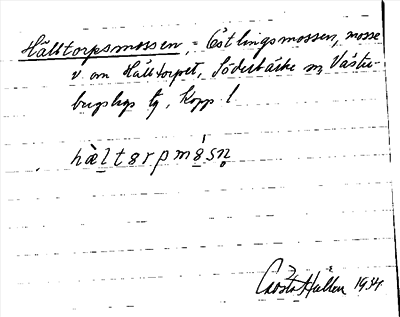 Hälltorpsmossen, = Östlingsmossen, mosse
v om Hälltorpet, Söderbärke sn, Väster-
bergslags tg, Kopp. l.
hæltɘrpmòsn̥
Gösta Hallén 1944